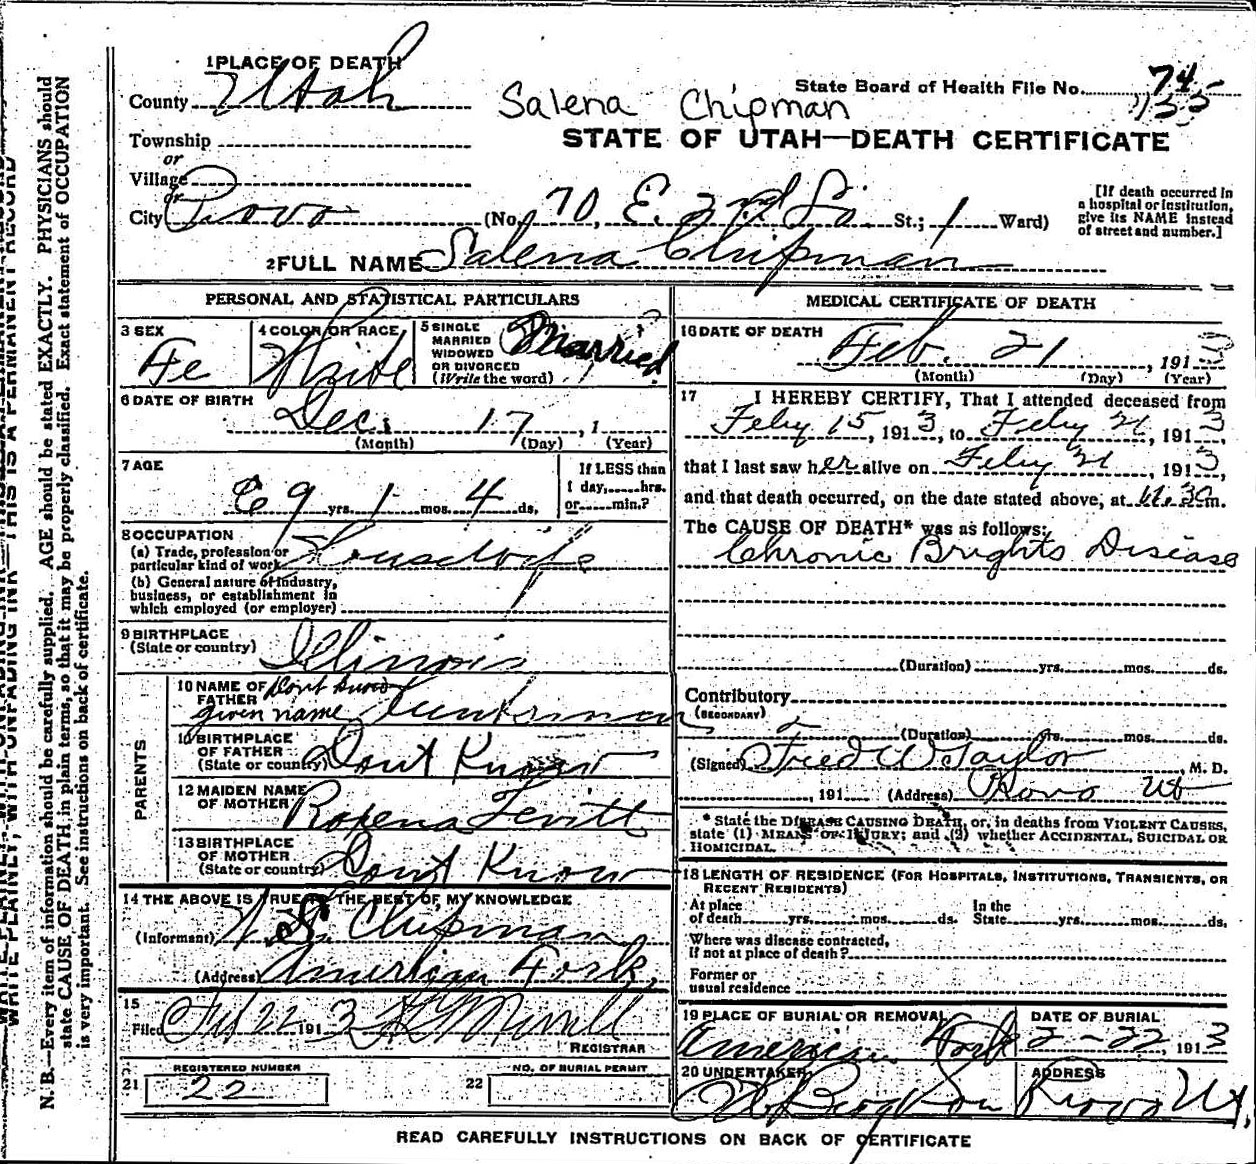 1 PLACE OF DEATH
County Utah
Salena Chipman
State Board of Health File No. 74
STATE OF UTAH—DEATH CERTIFICATE
Township
or
Village
or
City Provo (No. 70, E. 2nd So. St.; 1 Ward)
[If death occurred in a hospital or institution, give its NAME instead of street and number.]
2 FULL NAME Salena Chipman
PERSONAL AND STATISTICAL PARTICULARS
3 SEX
Fe
4 COLOR OR RACE
White
5 SINGLE
MARRIED
WIDOWED
OR DIVORCED
(Write the word)
Married
6 DATE OF BIRTH
Dec. 17, 1
(Month) (Day) (Year)
7 AGE
69 yrs. 1 mos. 4 ds.
If LESS than
1 day,......hrs.
or......min.?
8 OCCUPATION
(a) Trade, profession or
particular kind of work Housewife
(b) General nature of industry,
business, or establishment in
which employed (or employer)
9 BIRTHPLACE
(State or country) Illinois
PARENTS
10 NAME OF
FATHER
Dont know
given name
BIRTHPLACE
OF FATHER
(State or country) Dont Know
12 MAIDEN NAME
OF MOTHER Roxena Levitt
13 BIRTHPLACE
OF MOTHER
(State or country) Dont Know
14 THE ABOVE IS TRUE TO THE BEST OF MY KNOWLEDGE
(Informant) W. S. Chipman
(Address) American Fork,
15
Filed Feb 22 1913 Merrill
REGISTRAR
REGISTERED NUMBER
21 22
NO. OF BURIAL PERMIT
22
MEDICAL CERTIFICATE OF DEATH
16 DATE OF DEATH
Feb. 21, 1913
(Month) (Day) (Year)
17 I HEREBY CERTIFY, That I attended deceased from
Feby 15, 1913, to Feby 21, 1913
that I last saw her alive on Feby 21, 1913,
and that death occurred, on the date stated above, at m.
The CAUSE OF DEATH* was as follows:
Chronic Brights Disease
(Duration) yrs. mos. ds.
Contributory
(SECONDARY)
(Duration) yrs. mos. ds.
(Signed) Fred W Taylor, M. D.
, 191 (Address) Provo Ut
* State the DISEASE CAUSING DEATH, or, in deaths from VIOLENT CAUSES,
state (1) MEANS OF INJURY; and (2) whether ACCIDENTAL, SUICIDAL OR
HOMICIDAL.
18 LENGTH OF RESIDENCE (FOR HOSPITALS, INSTITUTIONS, TRANSIENTS, OR
RECENT RESIDENTS)
At place
of death yrs. mos. ds.
In the
State yrs. mos. ds.
Where was disease contracted,
if not at place of death?
Former or
usual residence
19 PLACE OF BURIAL OR REMOVAL
American Fork
DATE OF BURIAL
2-22, 1913
20 UNDERTAKER
ADDRESS
Provo Ut,
READ CAREFULLY INSTRUCTIONS ON BACK OF CERTIFICATE
WRITE PLAINLY, WITH UNFADING INK—THIS IS A PERMANENT RECORD
N. B.—Every item of information should be carefully supplied. AGE should be stated EXACTLY. PHYSICIANS should
state CAUSE OF DEATH in plain terms, so that it may be properly classified. Exact statement of OCCUPATION
is very important. See instructions on back of certificate.